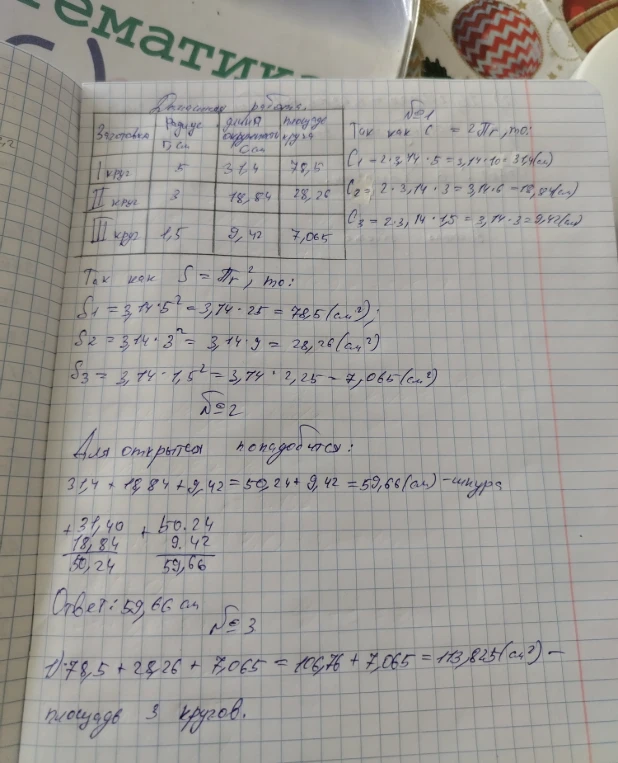 тематика
работа.
Заготовка
Радиус
r, см
длина
окружности
C, см
площадь
круга
I круг 5 31,4 78,5
II круг 3 18,84 28,26
III круг 1,5 9,42 7,065
№1
Так как C = 2Пr, то:
C1 = 2·3,14·5=3,14·10=31,4(см)
C2 = 2·3,14·3=3,14·6=18,84(см)
C3 = 2·3,14·1,5=3,14·3=9,42(см)
Так как S = Пr², то:
S1 = 3,14·5² = 3,14·25 = 78,5(см²);
S2 = 3,14·3² = 3,14·9 = 28,26(см²)
S3 = 3,14·1,5² = 3,14·2,25 = 7,065(см²)
№2
Для открытки понадобится:
31,4 + 18,84 + 9,42 = 50,24 + 9,42 = 59,66(см) - шнура
+31,40 +50.24
18,84 9.42
50,24 59,66
Ответ: 59,66 см
№3
1) 78,5 + 28,26 + 7,065 = 106,76 + 7,065 = 113,825(см²) -
площадь 3 кругов.